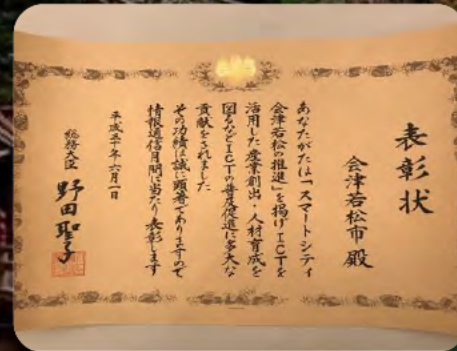 表彰状
会津若松市 殿
あなたがたは「スマートシティ
会津若松の推進」を掲げICTを
活用した産業創出・人材育成を
図るなどICTの普及促進に多大な
貢献をされました
その功績は誠に顕著でありますので
情報通信月間に当たり表彰します
平成三十年六月一日
総務大臣 野田聖子